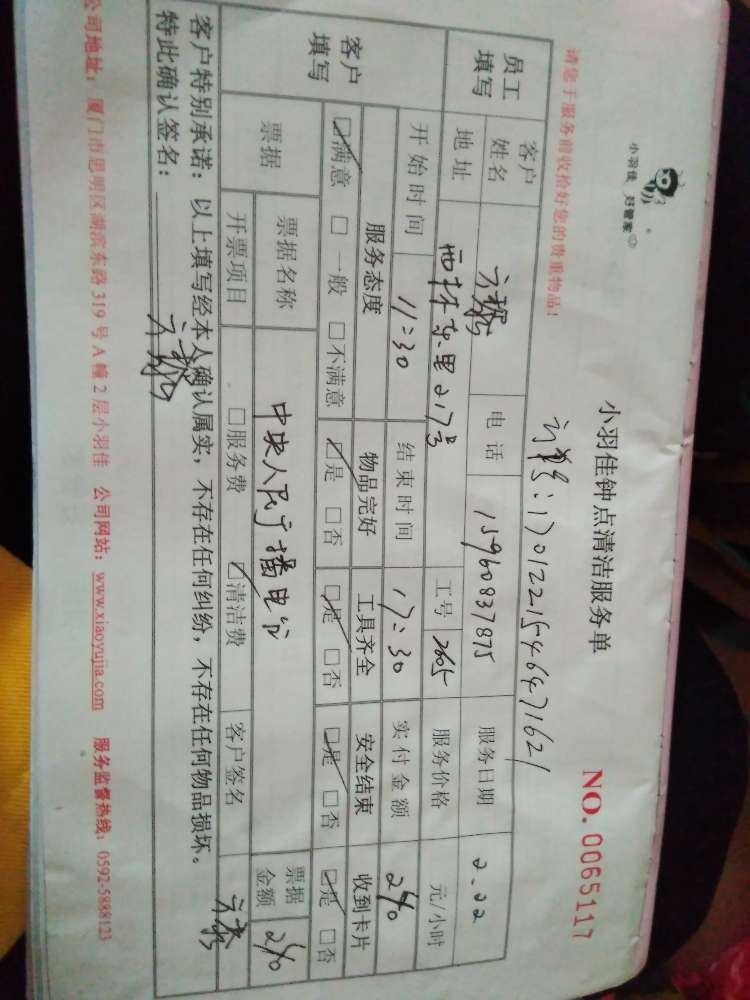 小羽佳 好管家
小羽佳钟点清洁服务单
NO. 0065117
请您于服务前收拾好您的贵重物品！
1701221546471621
员工填写 客户姓名 电话 15960837875 服务日期 2.22
地址 西林东里217号 工号 2605 服务价格 元/小时
客户填写 开始时间 11:30 结束时间 17:30 实付金额 240
服务态度 物品完好 工具齐全 安全结束 收到卡片
☑满意 □一般 □不满意 ☑是 □否 ☑是 □否 ☑是 □否 ☑是 □否
票据 票据名称 中央人民广播电台 票据金额 240
开票项目 □服务费 ☑清洁费 客户签名
客户特别承诺：以上填写经本人确认属实，不存在任何纠纷，不存在任何物品损坏。
特此确认签名：
公司地址：厦门市思明区湖滨东路319号A幢2层小羽佳 公司网站：www.xiaoyujia.com 服务监督热线：0592-5888123